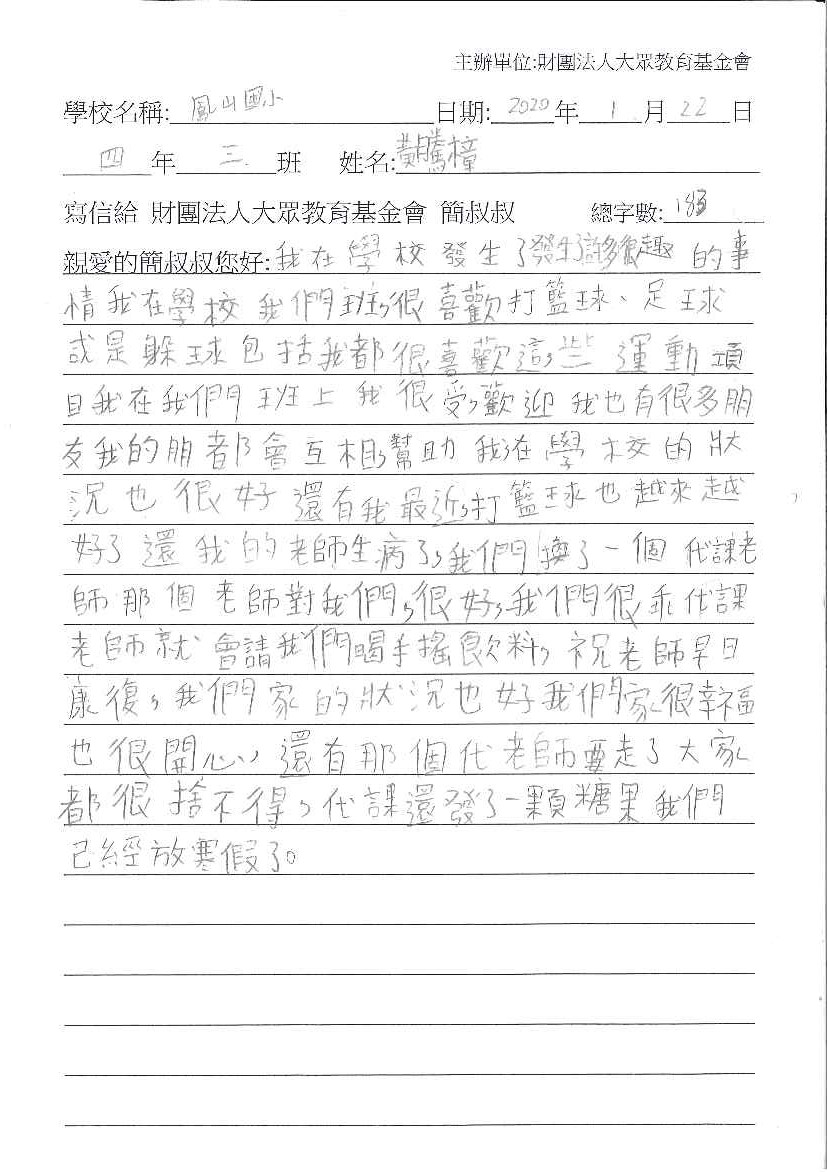 主辦單位:財團法人大眾教育基金會
學校名稱: 鳳山國小 日期: 2020 年 1 月 22 日
四 年 三 班 姓名: 黃騰樟
寫信給 財團法人大眾教育基金會 簡叔叔 總字數: 183
親愛的簡叔叔您好:我在學校發生了發生了許多很趣的事
情我在學校我們班,很喜歡打籃球、足球
或是躲球包括我都很喜歡這些運動項
目我在我們班上我很受歡迎我也有很多朋
友我的朋都會互相幫助我在學校的狀
況也很好還有我最近打籃球也越來越
好了還我的老師生病了,我們換了一個代課老
師那個老師對我們,很好,我們很乖代課
老師就會請我們喝手搖飲料,祝老師早日
康復,我們家的狀況也好我們家很幸福
也很開心,還有那個代老師要走了大家
都很捨不得,代課還發了一顆糖果我們
已經放寒假了。